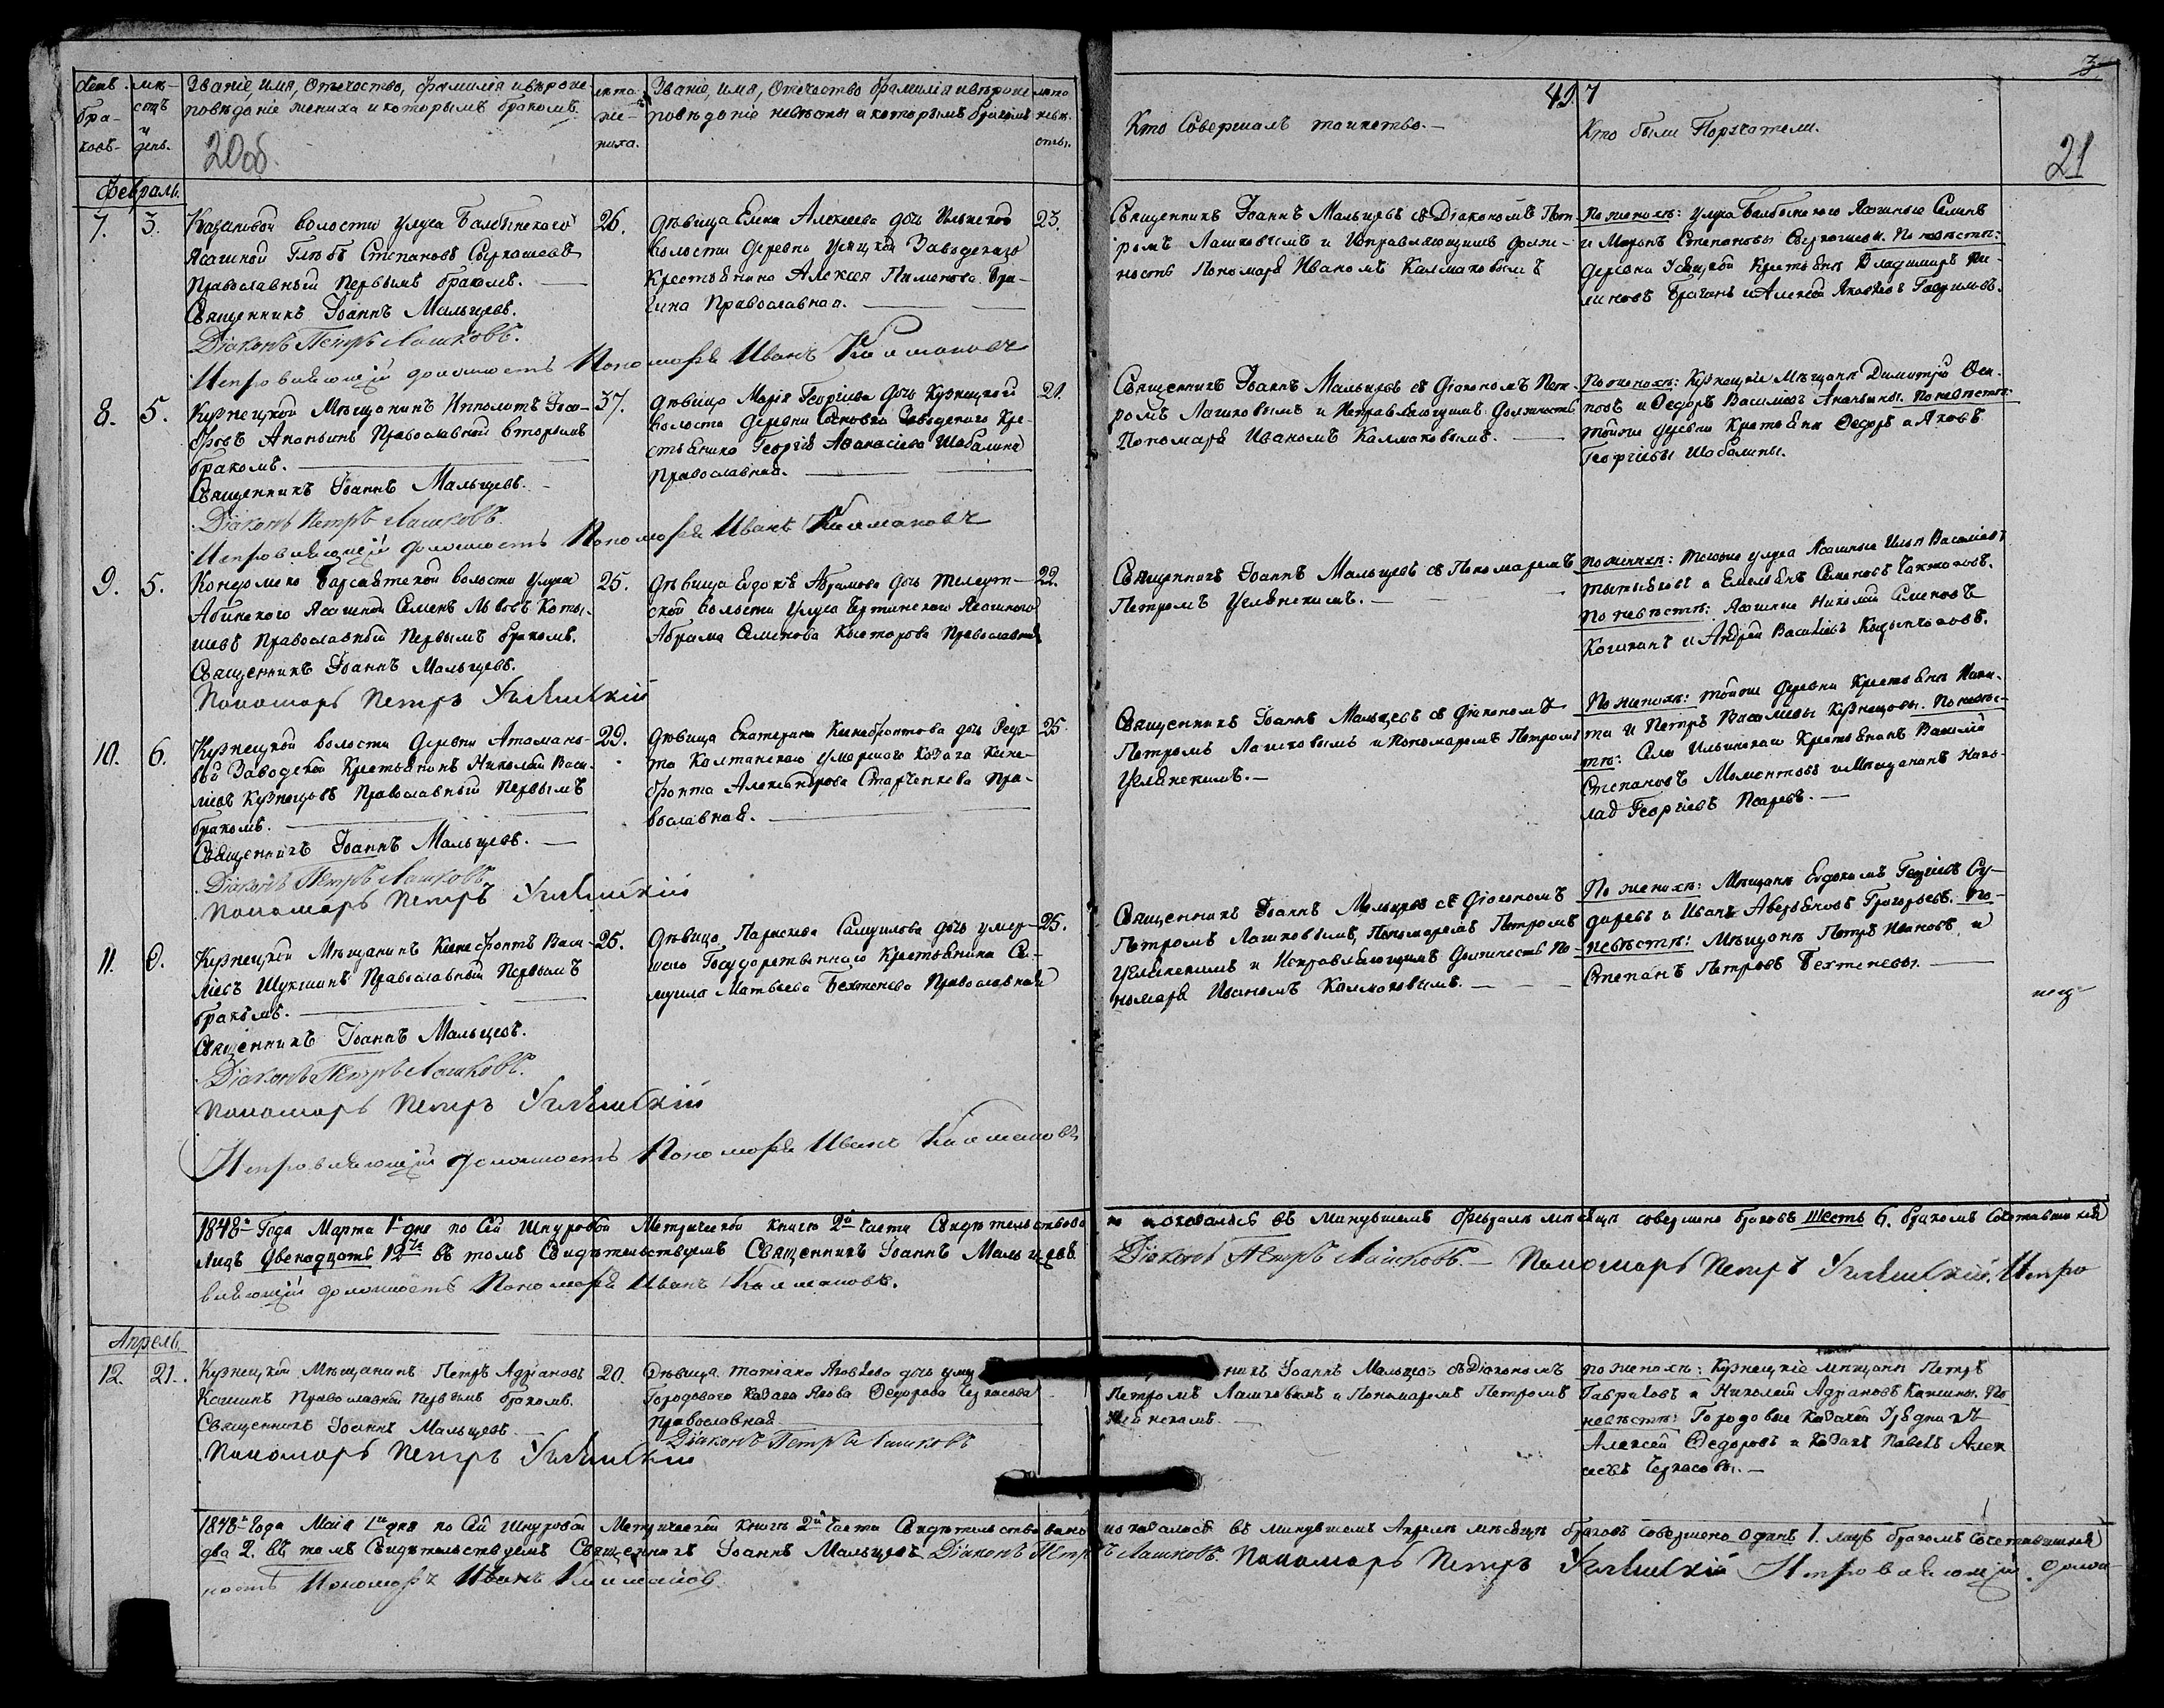 Счетъ бра- ковъ.
мѣ- сяцъ и день.
Званіе, имя, Отечество, фамилія и вѣроис-
повѣданіе жениха и которымъ бракомъ.
лѣта же- ниха.
Званіе, имя, Отечество фамилія и вѣроис-
повѣданіе невѣсты и которымъ бракомъ
лѣта невѣ- сты.
497
Кто Совершалъ таинство.
Кто были Поручатели.
3
20об.
21
Февраль.
7. 3.
волости улуса
Ясашной Глѣбъ Степановъ
Православный первымъ бракомъ.
Священникъ Іоаннъ Мальцевъ.
Діаконъ Петръ Лашковъ.
Исправляющій должность Пономаря Иванъ Калмаковъ
26.
Дѣвица Елена Алексеева дочь Ильинской
волости деревни Заводскаго
Крестьянина Алексея Пименова Бра-
гина Православная.
23.
Священникъ Іоаннъ Мальцевъ съ Діакономъ Пет-
ромъ Лашковымъ и Исправляющимъ долж-
ность Пономаря Иваномъ Калмаковымъ
По женихѣ: улуса Ясашные
и Степановы По невѣстѣ:
деревни Крестьяне Владимиръ Пи-
меновъ Брагинъ и Алексей Яковлевъ Гавриловъ.
8. 5.
Кузнецкой Мѣщанинъ Ипполитъ
Ананьинъ Православной вторымъ
бракомъ.
Священникъ Іоаннъ Мальцевъ.
Діаконъ Петръ Лашковъ.
Исправляющій должность Пономаря Иванъ Калмаковъ
37.
Дѣвица Марія Георгіева дочь Кузнецкой
волости деревни Сосновки Заводскаго Кре-
стьянина Георгія Аѳанасіева Шабалина
Православная.
21.
Священникъ Іоаннъ Мальцевъ съ Діакономъ Пет-
ромъ Лашковымъ и Исправляющимъ Должность
Пономаря Иваномъ Калмаковымъ.
По женихѣ: Кузнецкіе Мѣщане Димитрій
и Ѳедоръ Василіевъ Ананьины. По невѣстѣ:
тойже деревни Крестьяне Ѳедоръ и Яковъ
Георгіевы Шабалины.
9. 5.
Кондомско Барсаятской волости Улуса
Абинскаго Ясашной Семенъ Львовъ
Православный Первымъ бракомъ.
Священникъ Іоаннъ Мальцевъ.
Пономарь Петръ Уклѣинскій
25.
Дѣвица Евдокія Абрамова дочь Телеут-
ской волости Улуса Ясашнаго
Абрама Семенова Православная
22.
Священникъ Іоаннъ Мальцевъ съ Пономаремъ
Петромъ
По женихѣ: тогоже улуса Ясашные Илья Василіевъ
и Емельянъ Семеновъ
По невѣстѣ: Ясашные Николай Семеновъ
и Андрей Василіевъ
10. 6.
Кузнецкой волости Деревни Атамано-
вой Заводской Крестьянинъ Николай Васи-
ліевъ Кузнецовъ Православный Первымъ
бракомъ.
Священникъ Іоаннъ Мальцевъ.
Діаконъ Петръ Лашковъ.
Пономарь Петръ
29.
Дѣвица Екатерина Ксенофонтова дочь Реду-
та Калтанскаго умершаго Козака Ксено-
фонта Александрова Старченкова Пра-
вославная.
25.
Священникъ Іоаннъ Мальцевъ съ Діакономъ
Петромъ Лашковымъ и Пономаремъ Петромъ
По женихѣ: тойже Деревни Крестьяне Ники-
та и Петръ Василіевы Кузнецовы. По невѣс-
тѣ: Села Ильинскаго Крестьянинъ Василій
Степановъ и Мѣщанинъ
Георгіевъ
11. 8.
Кузнецкой Мѣщанинъ Ксенофонтъ Васи-
ліевъ Шукшинъ Православный Первымъ
бракомъ.
Священникъ Іоаннъ Мальцевъ.
Діаконъ Петръ Лашковъ.
Пономарь Петръ
Исправляющій должность Пономаря Иванъ Калмаковъ
25.
Дѣвица Параскева Самуилова дочь умер-
шаго Государственнаго Крестьянина Са-
муила Матвѣева Бехтенева Православная
25.
Священникъ Іоаннъ Мальцевъ съ Діакономъ
Петромъ Лашковымъ, Пономаремъ Петромъ
и Исправляющимъ Должность По-
номаря Иваномъ Калмаковымъ.
По женихѣ: Мѣщане Евдокимъ
и Иванъ Аверьяновъ Григорьевъ. По
невѣстѣ: Мѣщане Петръ Ивановъ, и
Степанъ Петровъ Бехтеневы.
1848го Года Марта 1го дня по Сей Шнуровой Метрической книгѣ 2й Части Свидѣтельствова-
но и оказалось въ минувшемъ Февралѣ мѣсяцѣ совершено браковъ шесть 6. бракомъ Сочетавшихся
лицъ двенадцать 12ть въ томъ Свидѣтельствуемъ Священникъ Іоаннъ Мальцевъ.
Діаконъ Петръ Лашковъ. Пономарь Петръ Испра
вляющій должность Пономаря Иванъ Калмаковъ.
Апрель.
12. 21.
Кузнецкой Мѣщанинъ Петръ Адріановъ
Кашинъ Православной Первымъ бракомъ.
Священникъ Іоаннъ Мальцевъ
Пономарь Петръ
20.
Дѣвица Татіана Яковлева дочь
Городоваго Козака Якова Ѳедорова Черкасова
Православная
Діаконъ Петръ Лашковъ
никъ Іоаннъ Мальцевъ съ Діакономъ
Петромъ Лашковымъ и Пономаремъ Петромъ
По женихѣ: Кузнецкіе мѣщане Петръ
Гавриловъ и Николай Адріановъ Кашины. По
невѣстѣ: Городовые Козачей Урядникъ
Алексей Ѳедоровъ и козакъ Павелъ Алек
сеевъ Черкасовы.
1848го Года Маія 1го дня по Сей Шнуровой Метрической книгѣ 2й Части Свидѣтельствовано
и оказалось въ минувшемъ Апрелѣ мѣсяцѣ браковъ совершено одинъ 1. лицъ бракомъ Сочетавшихся
два 2. въ томъ Свидѣтельствуемъ Священникъ Іоаннъ Мальцевъ Діаконъ Петръ Лашковъ. Пономарь Петръ Исправляющій долж-
ность Пономаря Иванъ Калмаковъ